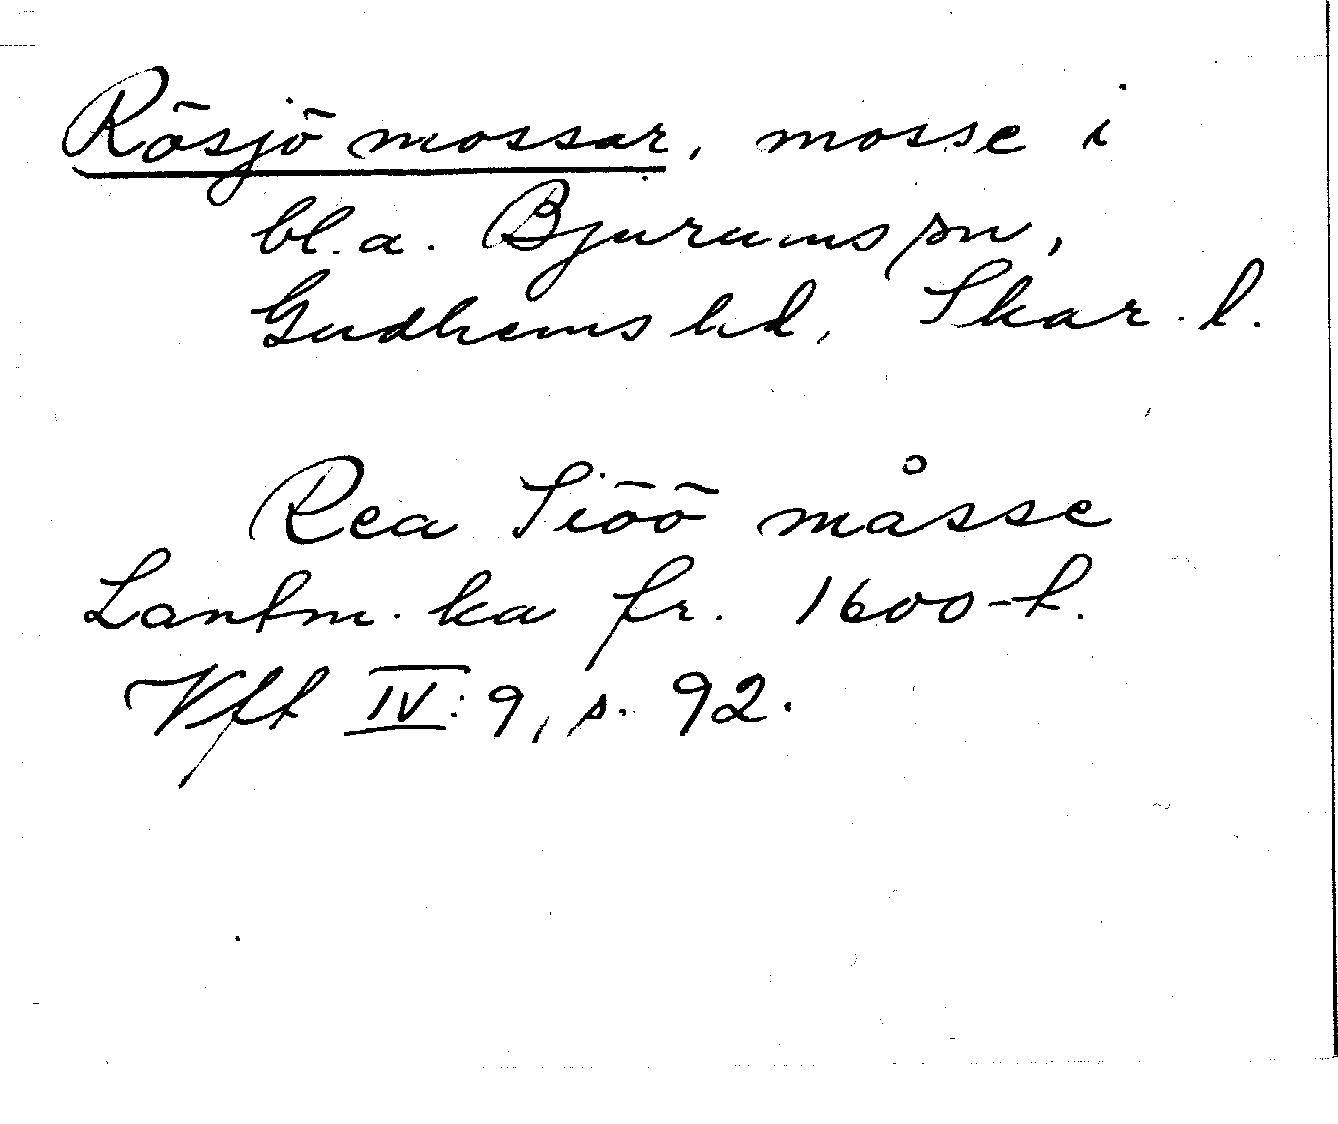 Rösjö mossar, mosse i
bl.a. Bjurums sn,
Gudhems hd, Skar. l.
Rea Siöö måsse
Lantm. ka fr. 1600-t.
Vft IV: 9, s. 92.